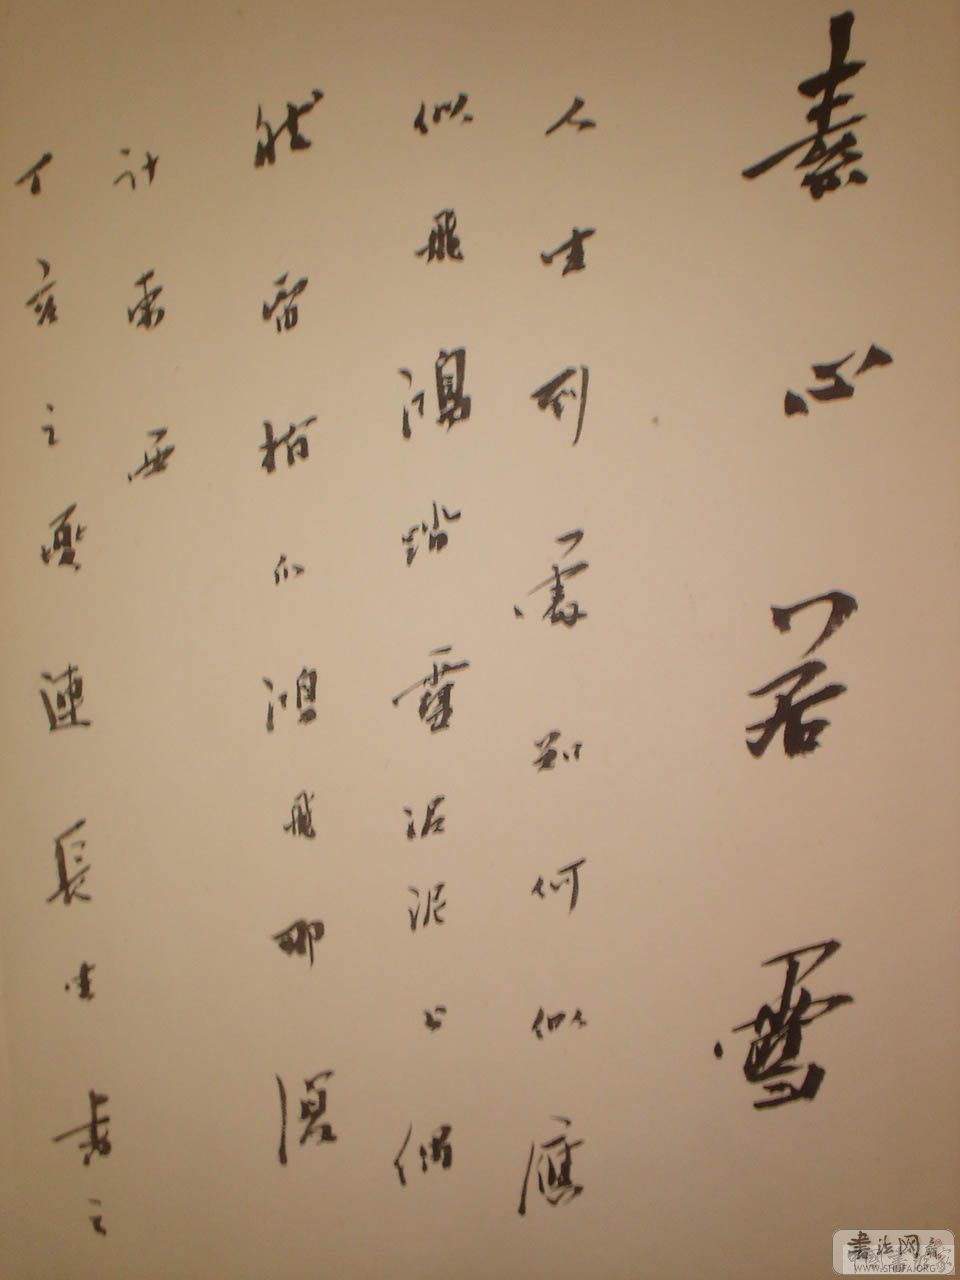 素心若雪
人生到處知何似應
似飛鴻踏雪泥泥上偶
然留指爪鴻飛那復
計東西
丁亥之夏連長生書之
書法网
WWW.SHUFA.ORG